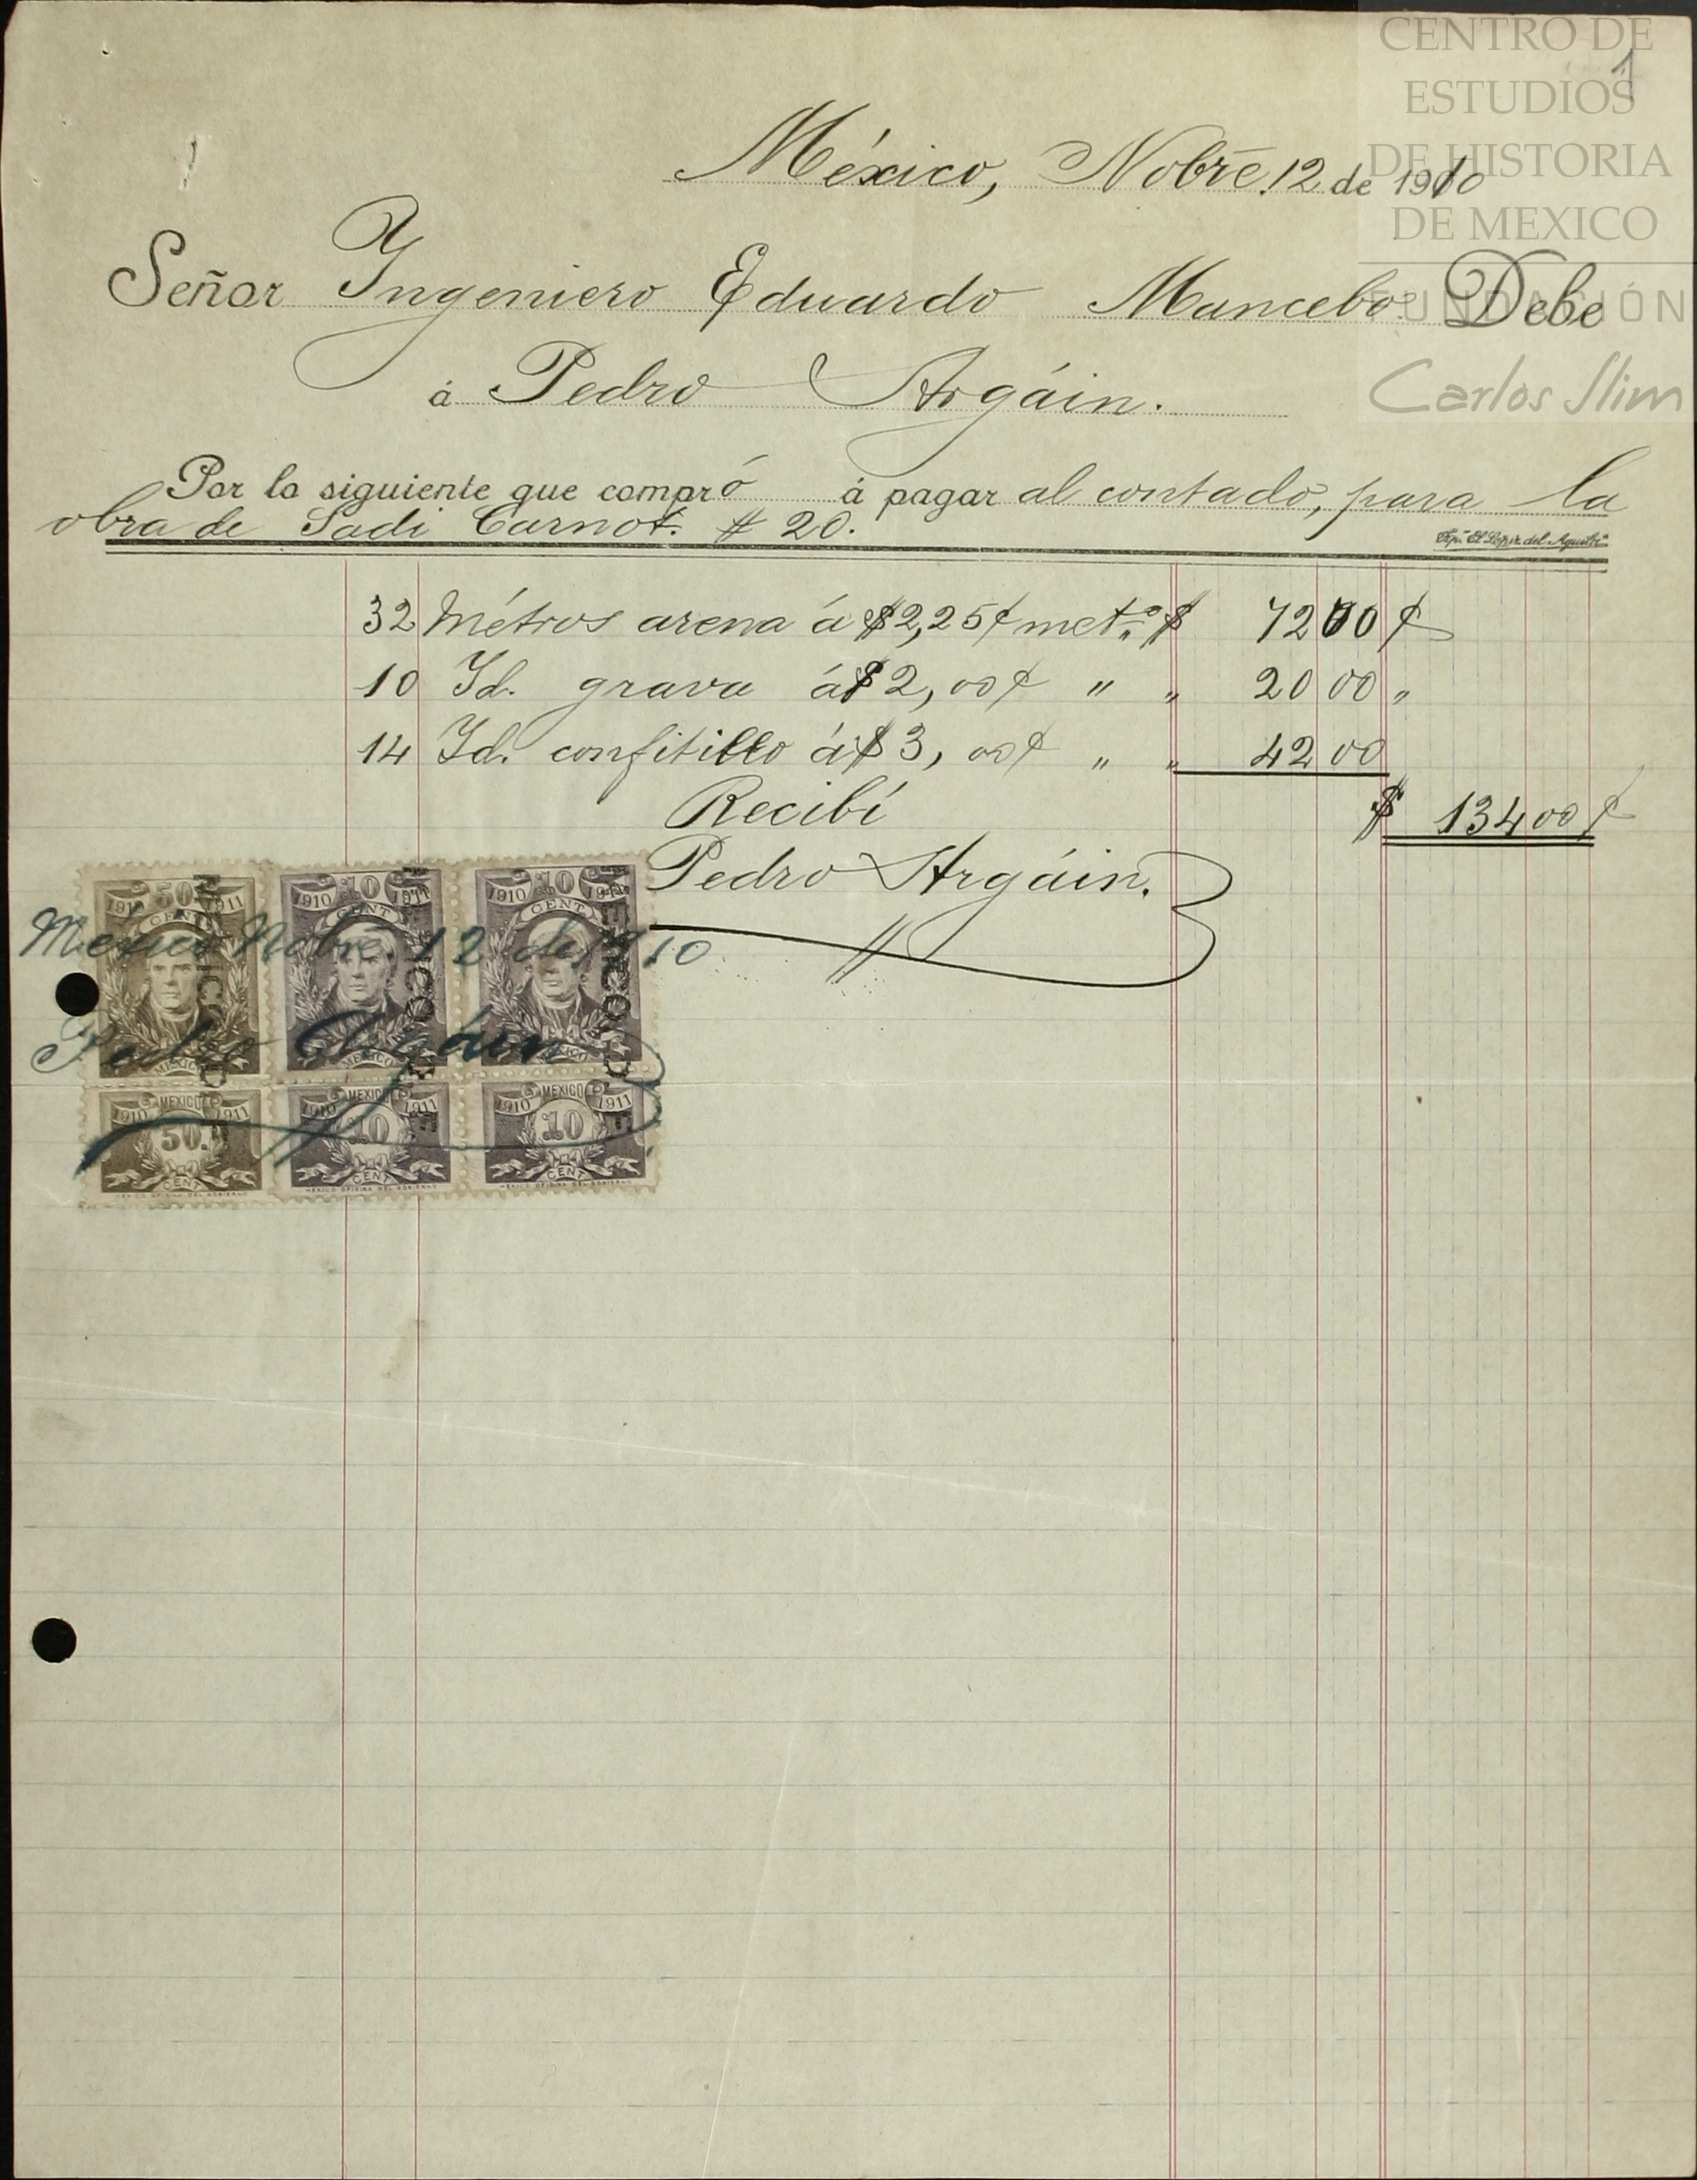 CENTRO DE
ESTUDIOS
DE HISTORIA
DE MEXICO
FUNDACIÓN
Carlos Slim
1
México, Nobre. 12 de 1910
Señor Yngeniero Eduardo Mancebo Debe
á Pedro Argáin.
Por lo siguiente que compró á pagar al contado, para la
obra de Sadi Carnot. # 20.
32 Métros arena á $2,25¢ met.º $ 72 00 ¢
10 Yd. grava á $2,00¢ " " 20 00 "
14 Yd. confitillo á $3,00¢ " " 42 00
$ 134 00 ¢
Recibí
Pedro Argáin.
1910 50 1911
CENT
MEXICO
1910 10 1911
CENT
MEXICO
1910 10 1911
CENT
MEXICO
México Nobre. 12 de 1910
Pedro Argáin
MEXICO
1910 1911
50.
CENT
MEXICO
1910 1911
10
CENT
MEXICO
1910 1911
10
CENT
MEXICO OFICINA DEL GOBIERNO
MEXICO OFICINA DEL GOBIERNO